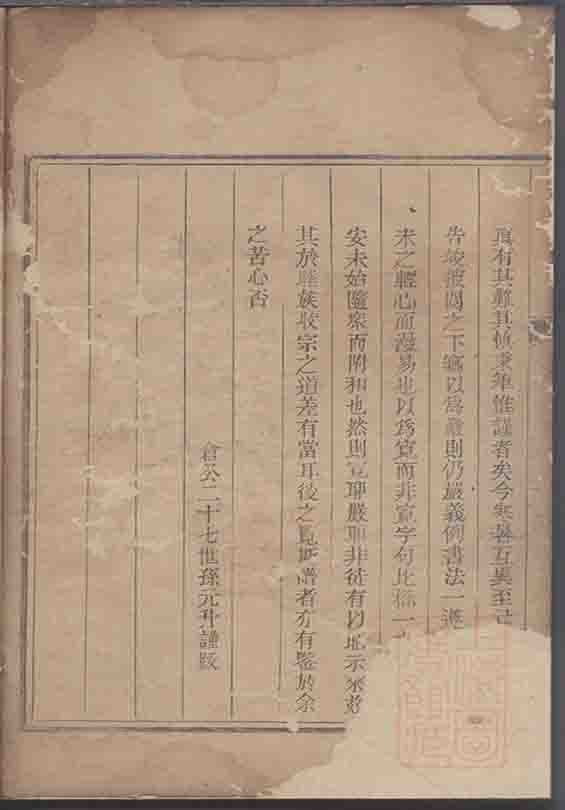 有其難其慎秉筆惟謹者矣今寒暑互異至己
告竣披閱之下寬以爲嚴則仍嚴義例書法一遵
未之輕心而漫易也以爲寬而非寬字句比
安未始隨衆而附和也然則寬耶嚴耶非徒有以
其於睦族收宗之道差有當耳後之覽斯譜者亦有鑒於余
之苦心否
倉公二十七世孫元升謹跋